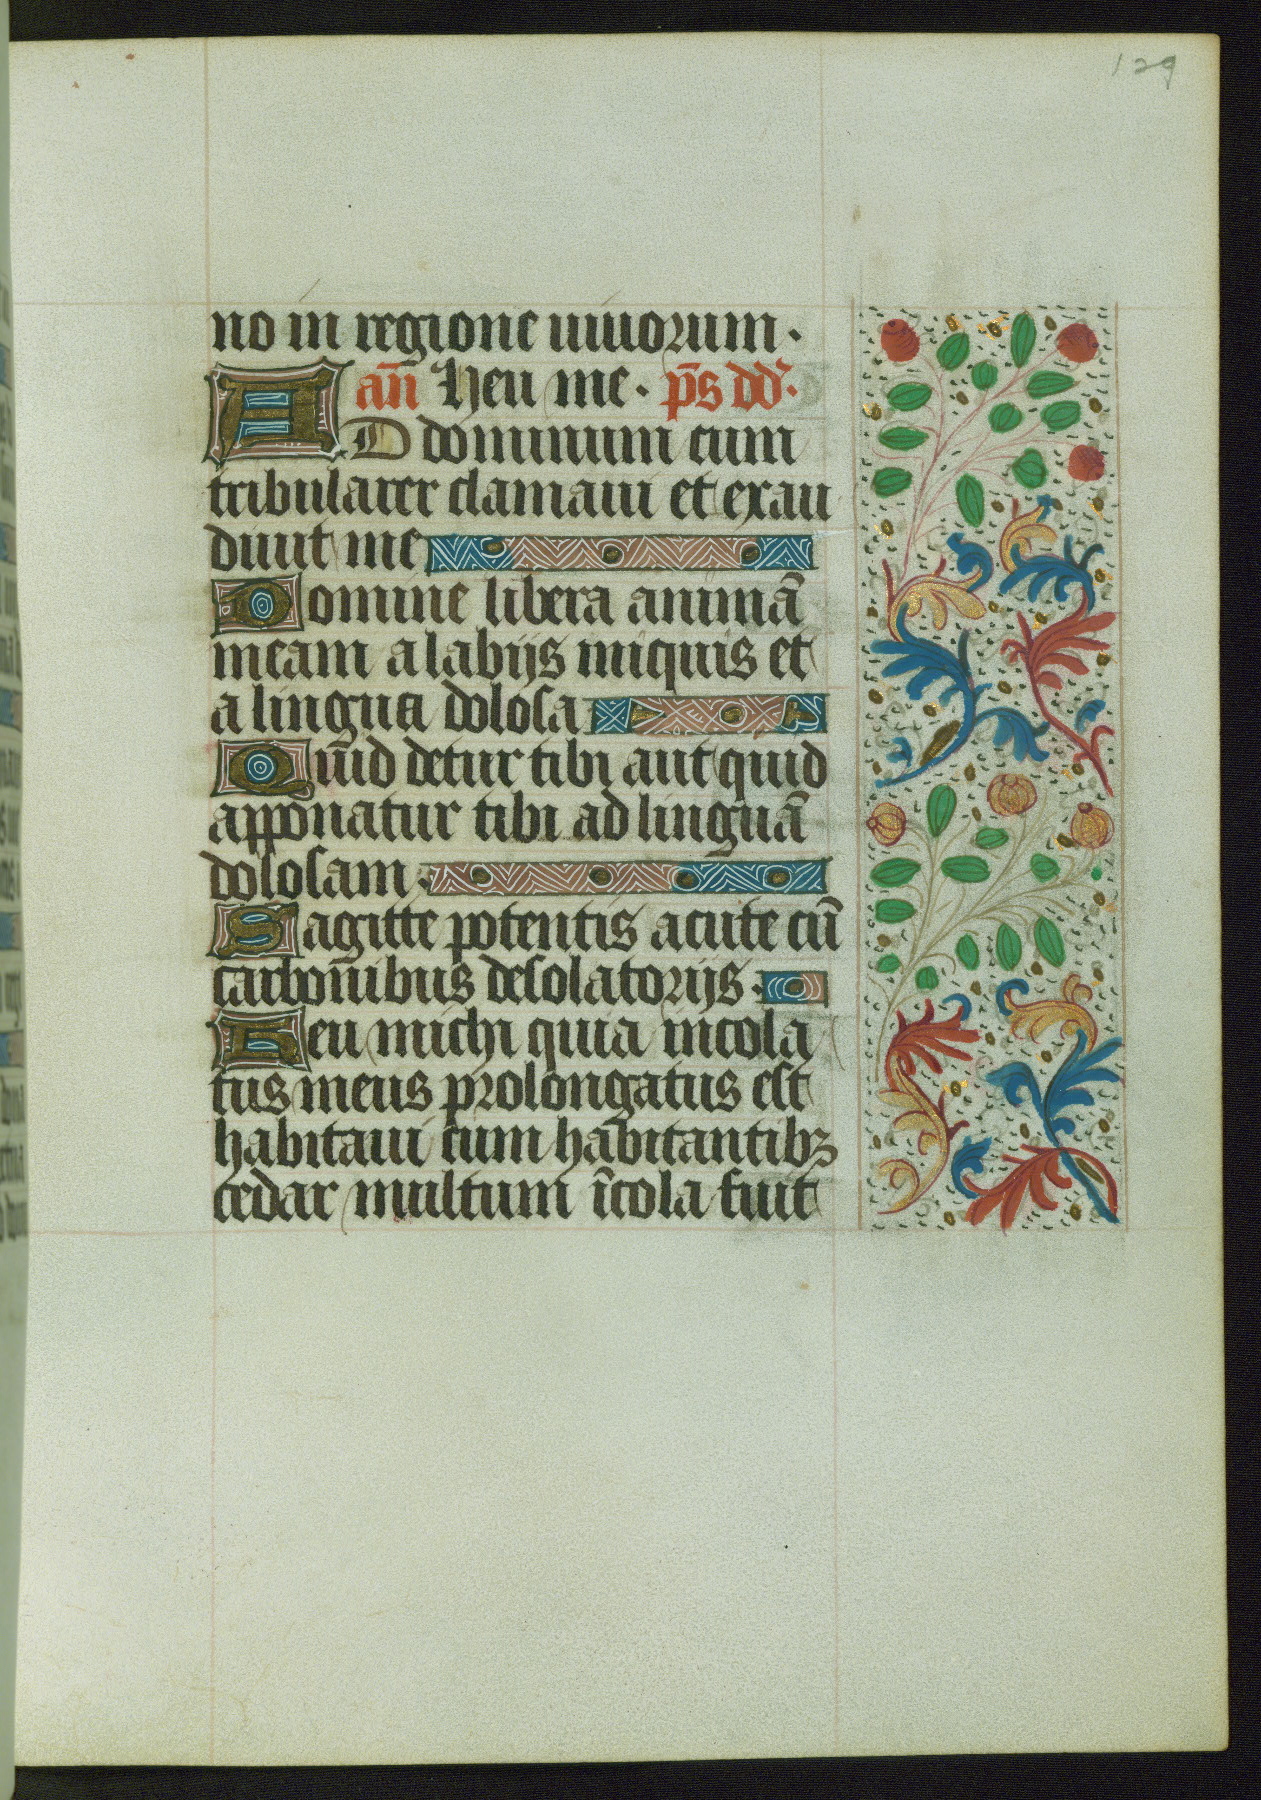 129
no in regione uiuorum.
añ Heu me. p̄s dd̄.
AD dominum cum
tribularer clamaui et exau
diuit me
Domine libera animā
meam a labijs iniquis et
a lingua dolosa
Quid detur tibi aut quid
apponatur tibi ad linguā
dolosam.
Sagitte potentis acute cū
carbonibus desolatorijs.
Heu michi quia incola
tus meus prolongatus est
habitaui cum habitantibꝫ
cedar multum īcola fuit